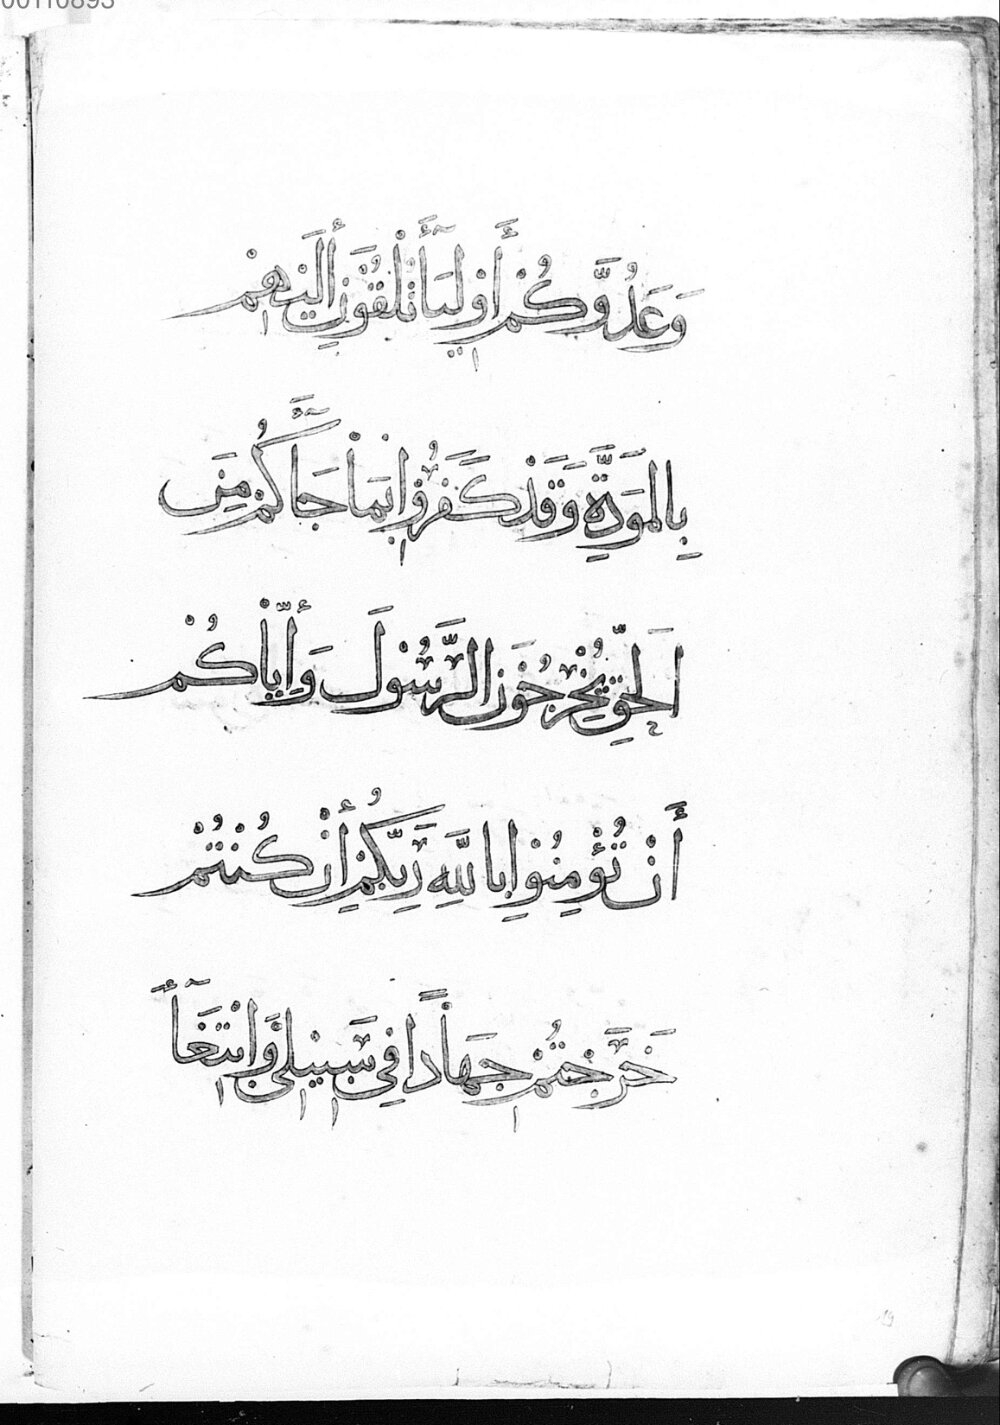 00110893
وَعَدُوَّكُمْ أَوْلِيَآءَ تُلْقُوْنَ إِلَيْهِمْ
بِالْمَوَدَّةِ وَقَدْ كَفَرُوْا بِمَا جَآءَكُمْ مِنَ
الْحَقِّ يُخْرِجُوْنَ الرَّسُوْلَ وَإِيَّاكُمْ
أَنْ تُؤْمِنُوْا بِاللّٰهِ رَبِّكُمْ إِنْ كُنْتُمْ
خَرَجْتُمْ جِهَادًا فِي سَبِيْلِيْ وَابْتِغَآءَ